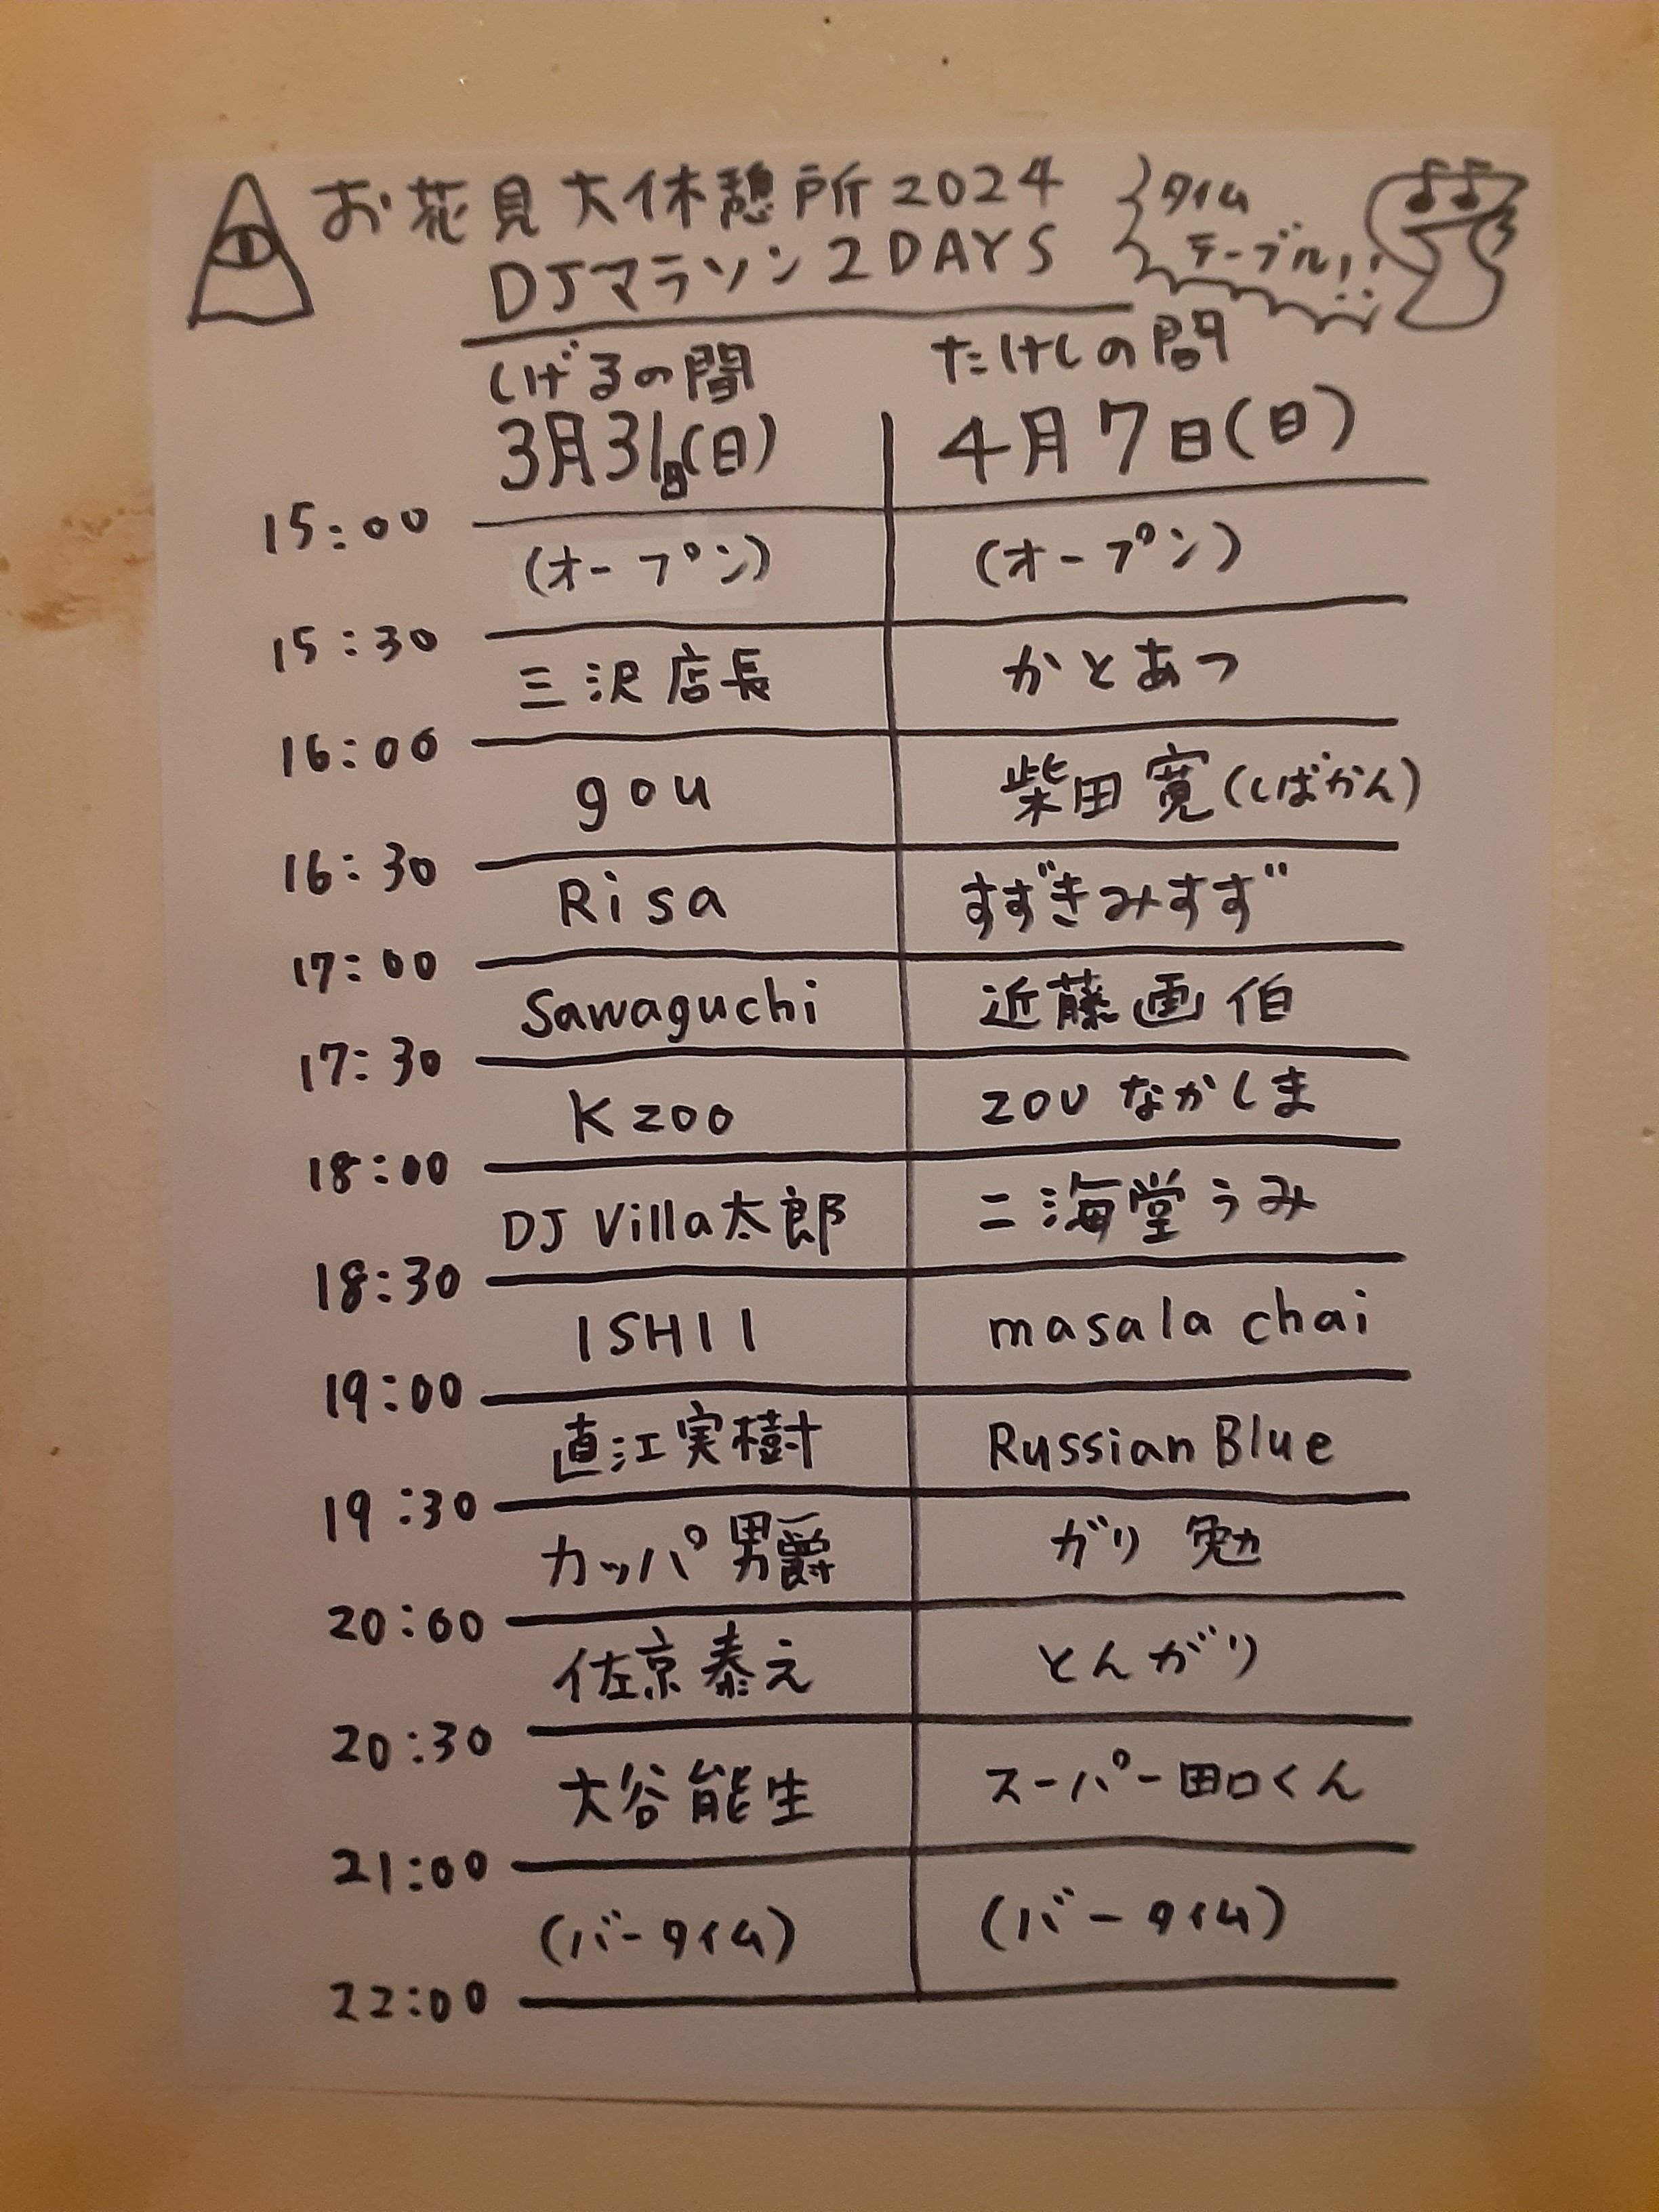 お花見大休憩所2024 タイム
DJマラソン2DAYS テーブル!!
しげるの間 たけしの間
3月31日(日) 4月7日(日)
15:00
(オープン) (オープン)
15:30
三沢店長 かとあつ
16:00
gou 柴田寛(しばかん)
16:30
Risa すずきみすず
17:00
Sawaguchi 近藤画伯
17:30
Kzoo ZOUなかしま
18:00
DJ Villa太郎 二海堂うみ
18:30
ISHII masala chai
19:00
直江実樹 Russian Blue
19:30
カッパ男爵 ガリ勉
20:00
佐京泰之 とんがり
20:30
大谷能生 スーパー田口くん
21:00
(バータイム) (バータイム)
22:00